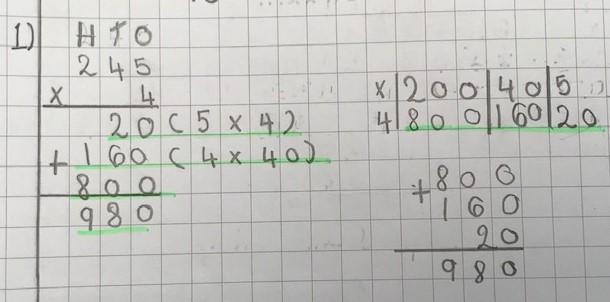 1) H T O
2 4 5
x 4
2 0 ( 5 x 4 )
+ 1 6 0 ( 4 x 4 0 )
8 0 0
9 8 0
x | 2 0 0 | 4 0 | 5
4 | 8 0 0 | 1 6 0 | 2 0
+ 8 0 0
1 6 0
2 0
9 8 0